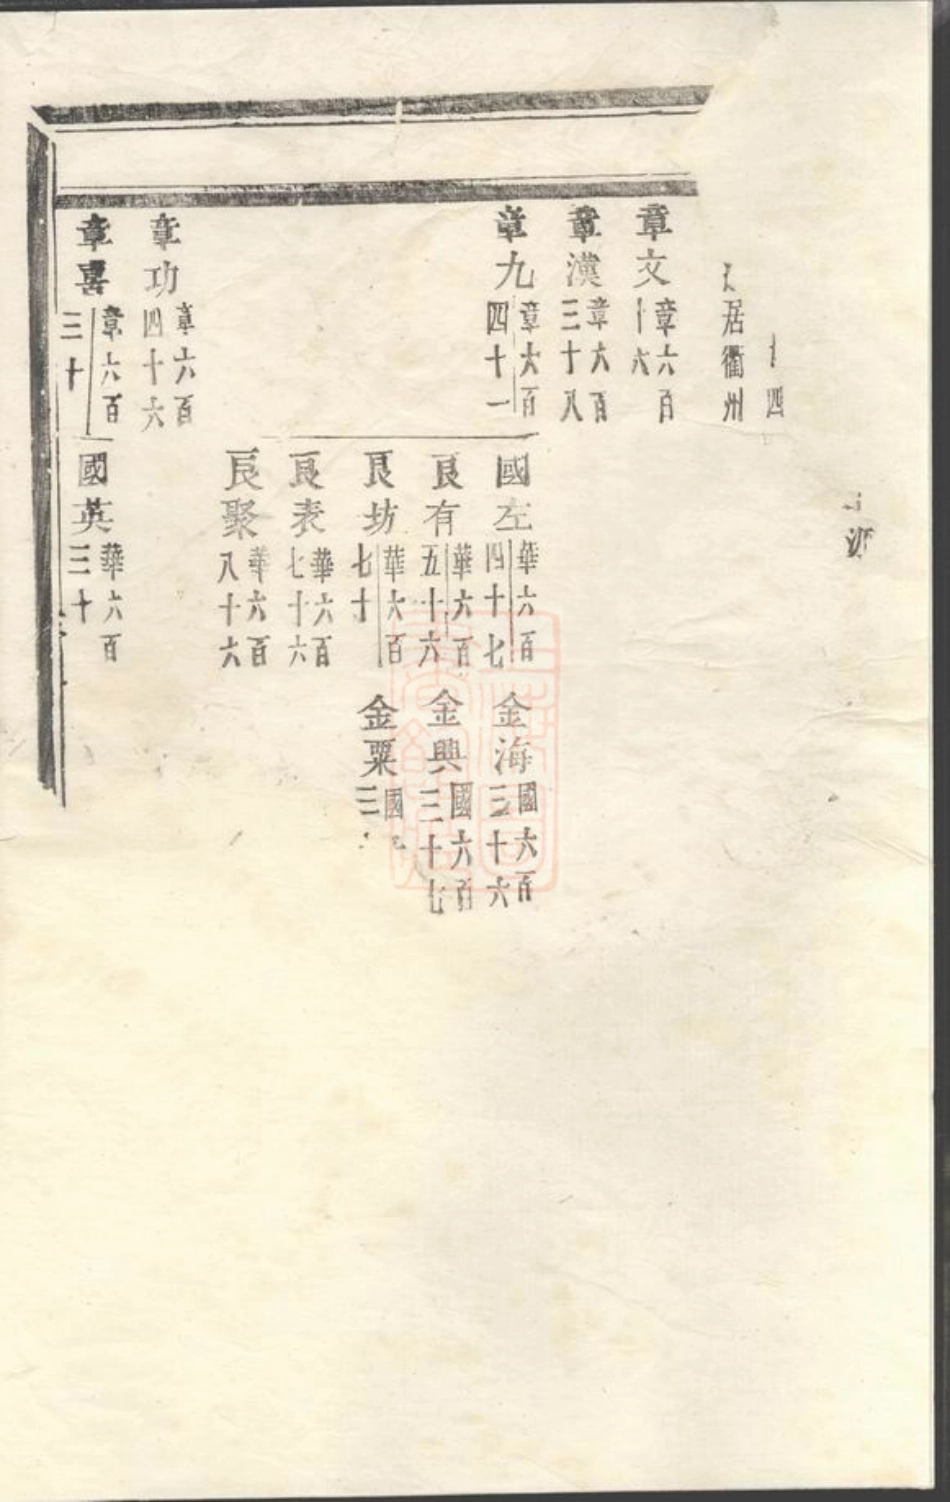 四
居衢州
章文 章六百十六
章漢 章六百三十八
章九 章六百四十一
章功 章六百四十六
章喜 章六百三十
國左 華六百四十七
良有 華六百五十六
良坊 華六百七十
良表 華六百七十六
良聚 華六百八十六
國英 華六百三十
金海 國六百三十六
金興 國六百三十七
金粟 國